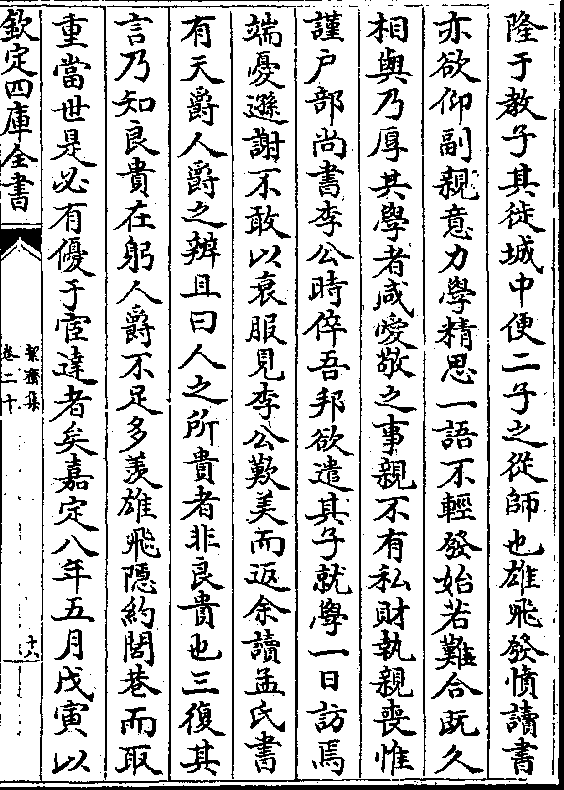 隆于教子其徙城中便二子之從師也雄飛發憤讀書
亦欲仰副親意力學精思一語不輕發始若難合既久
相與乃厚其學者咸愛敬之事親不有私財執親喪惟
謹户部尚書李公時倅吾邦欲遣其子就學一日訪焉
端憂遜謝不敢以衰服見李公歎美而返余讀孟氏書
有天爵人爵之辨且曰人之所貴者非良貴也三復其
言乃知良貴在躬人爵不足多羡雄飛隱約閭巷而取
重當世是必有優于宦達者矣嘉定八年五月戊寅以
欽定四庫全書
絜齋集
卷二十
十六